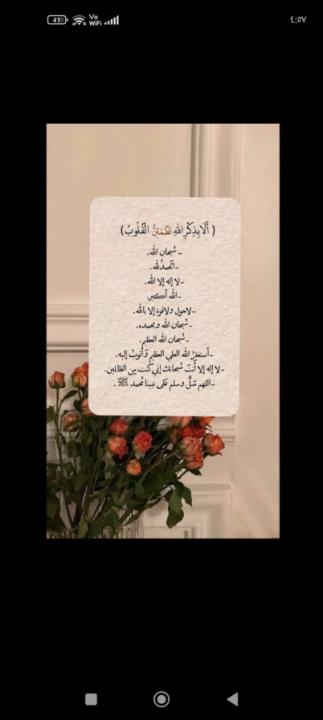 41
Vo
WiFi
٤:٥٧
( أَلَا بِذِكْرِ اللهِ تَطْمَئِنُّ الْقُلُوبُ)
-سُبحان الله.
-الحمدُلله.
-لا إله إلا الله.
-الله أكبر.
-لاحول ولاقوة إلا بالله.
-سُبحان الله وبحمده.
-سُبحان الله العظيم.
-أستغفرُ الله العلي العظيم وَأتوبُ إليه.
-لا إله إلا أنتَ سُبحانك إني كُنت مِن الظالمين.
-اللهم صَلِّ وسلم على نبينا مُحمد ﷺ .